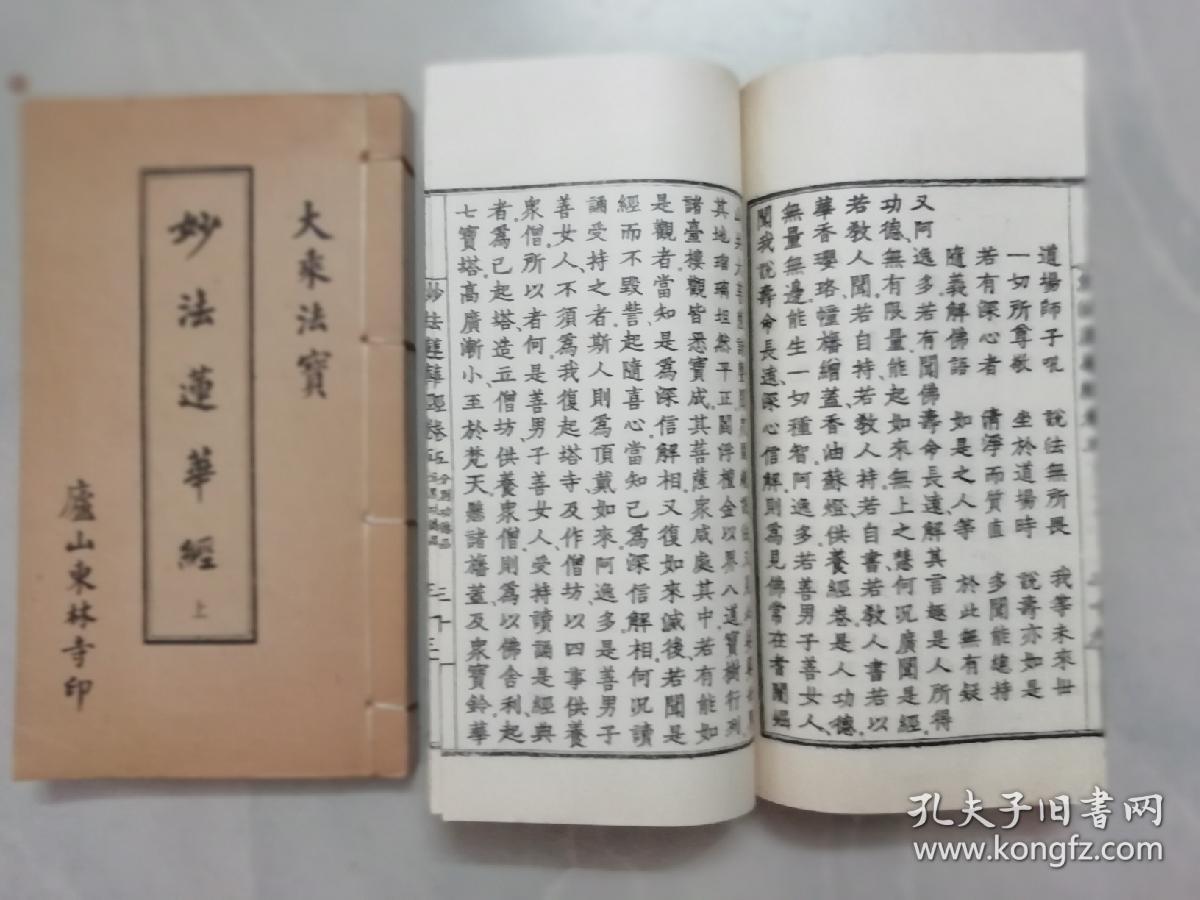 大乘法寶
妙法蓮華經
上
廬山東林寺印
道場師子吼 說法無所畏 我等未來世
一切所尊敬 坐於道場時 說壽亦如是
若有深心者 清淨而質直 多聞能總持
隨義解佛語 如是之人等 於此無有疑
又阿逸多若有聞佛壽命長遠解其言趣是人所得
功德無有限量能起如來無上之慧何況廣聞是經
若教人聞若自持若教人持若自書若教人書若以
華香瓔珞幢旛繒蓋香油蘇燈供養經卷是人功德
無量無邊能生一切種智阿逸多若善男子善女人
聞我說壽命長遠深心信解則為見佛常在耆闍崛
其地瑠璃坦然平正閻浮檀金以界八道寶樹行列
諸臺樓觀皆悉寶成其菩薩眾咸處其中若有能如
是觀者當知是為深信解相又復如來滅後若聞是
經而不毀訾起隨喜心當知已為深信解相何況讀
誦受持之者斯人則為頂戴如來阿逸多是善男子
善女人不須為我復起塔寺及作僧坊以四事供養
眾僧所以者何是善男子善女人受持讀誦是經典
者為已起塔造立僧坊供養眾僧則為以佛舍利起
七寶塔高廣漸小至於梵天懸諸旛蓋及眾寶鈴華
妙法蓮華經卷五
孔夫子旧书网
www.kongfz.com